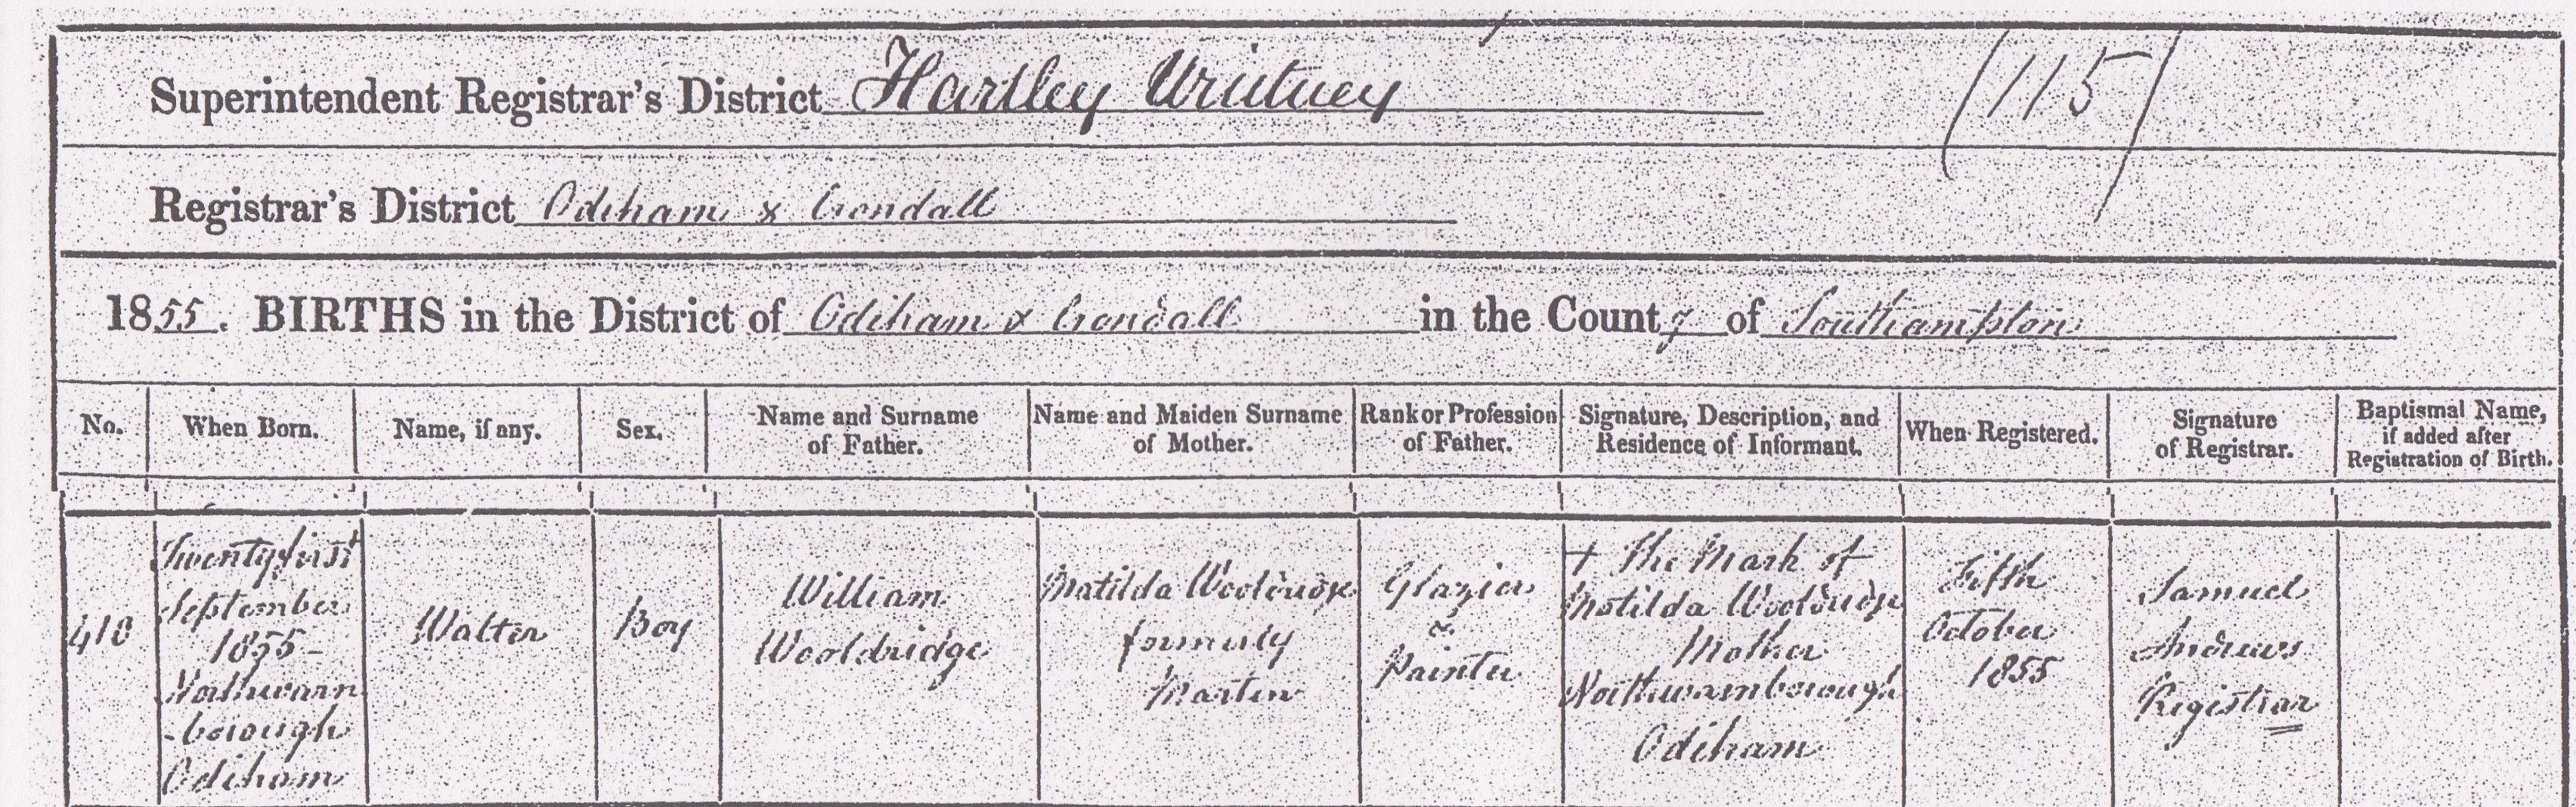 Superintendent Registrar's District Hartley Wintney (115)
Registrar's District Odiham & Crondall
1855. BIRTHS in the District of Odiham & Crondall in the County of Southampton
No. When Born. Name, if any. Sex. Name and Surname of Father. Name and Maiden Surname of Mother. Rank or Profession of Father. Signature, Description, and Residence of Informant. When Registered. Signature of Registrar. Baptismal Name, if added after Registration of Birth.
410
Twenty first
September
1855-
Northwarn
-borough
Odiham
Walter
Boy
William
Wooldridge
Matilda Wooldridge
formerly
Martin
Glazier
&
Painter
+ The Mark of
Matilda Wooldridge
Mother
Northwarnborough
Odiham
Fifth
October
1855
Samuel
Andrews
Registrar